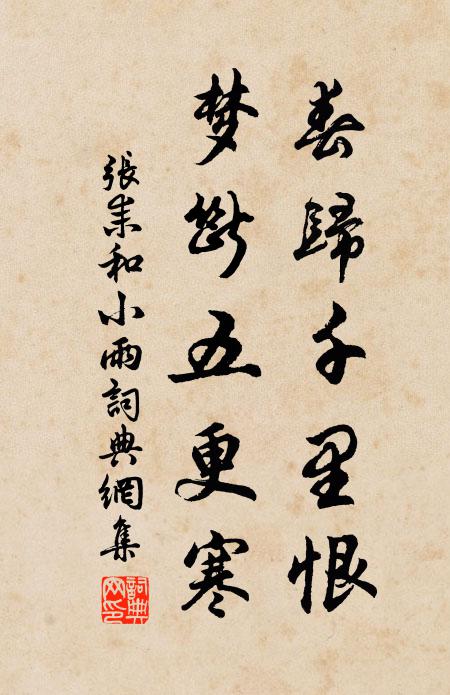 春歸千里恨
梦斷五更寒
張耒和小雨詞典網集
詞典網印